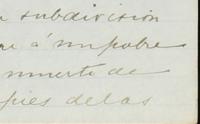 subdivision
á un pobre
muerto de
pies de las